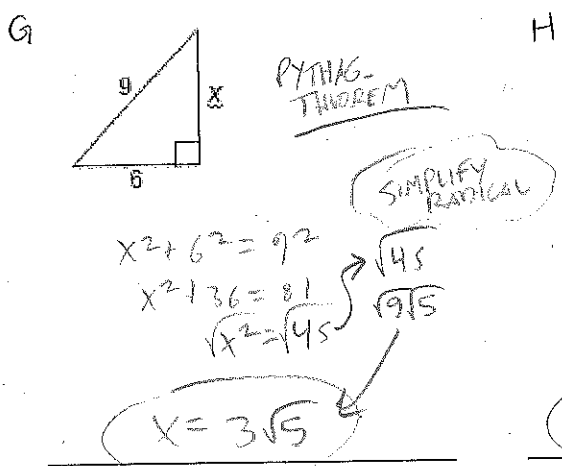 G
H
9
x
6
PYTHAG-
THEOREM
SIMPLIFY
RADICAL
x² + 6² = 9²
x² + 36 = 81
√x² = √45
√45
√9√5
x = 3√5